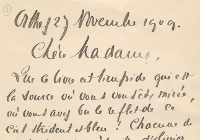 27 Novembre 1909.
Chère Madame,
Que ce lieu est limpide qui est
la source où vous vous êtes mirée,
où vous avez bu le reflet de ce
ciel strident et bleu! Chacune de